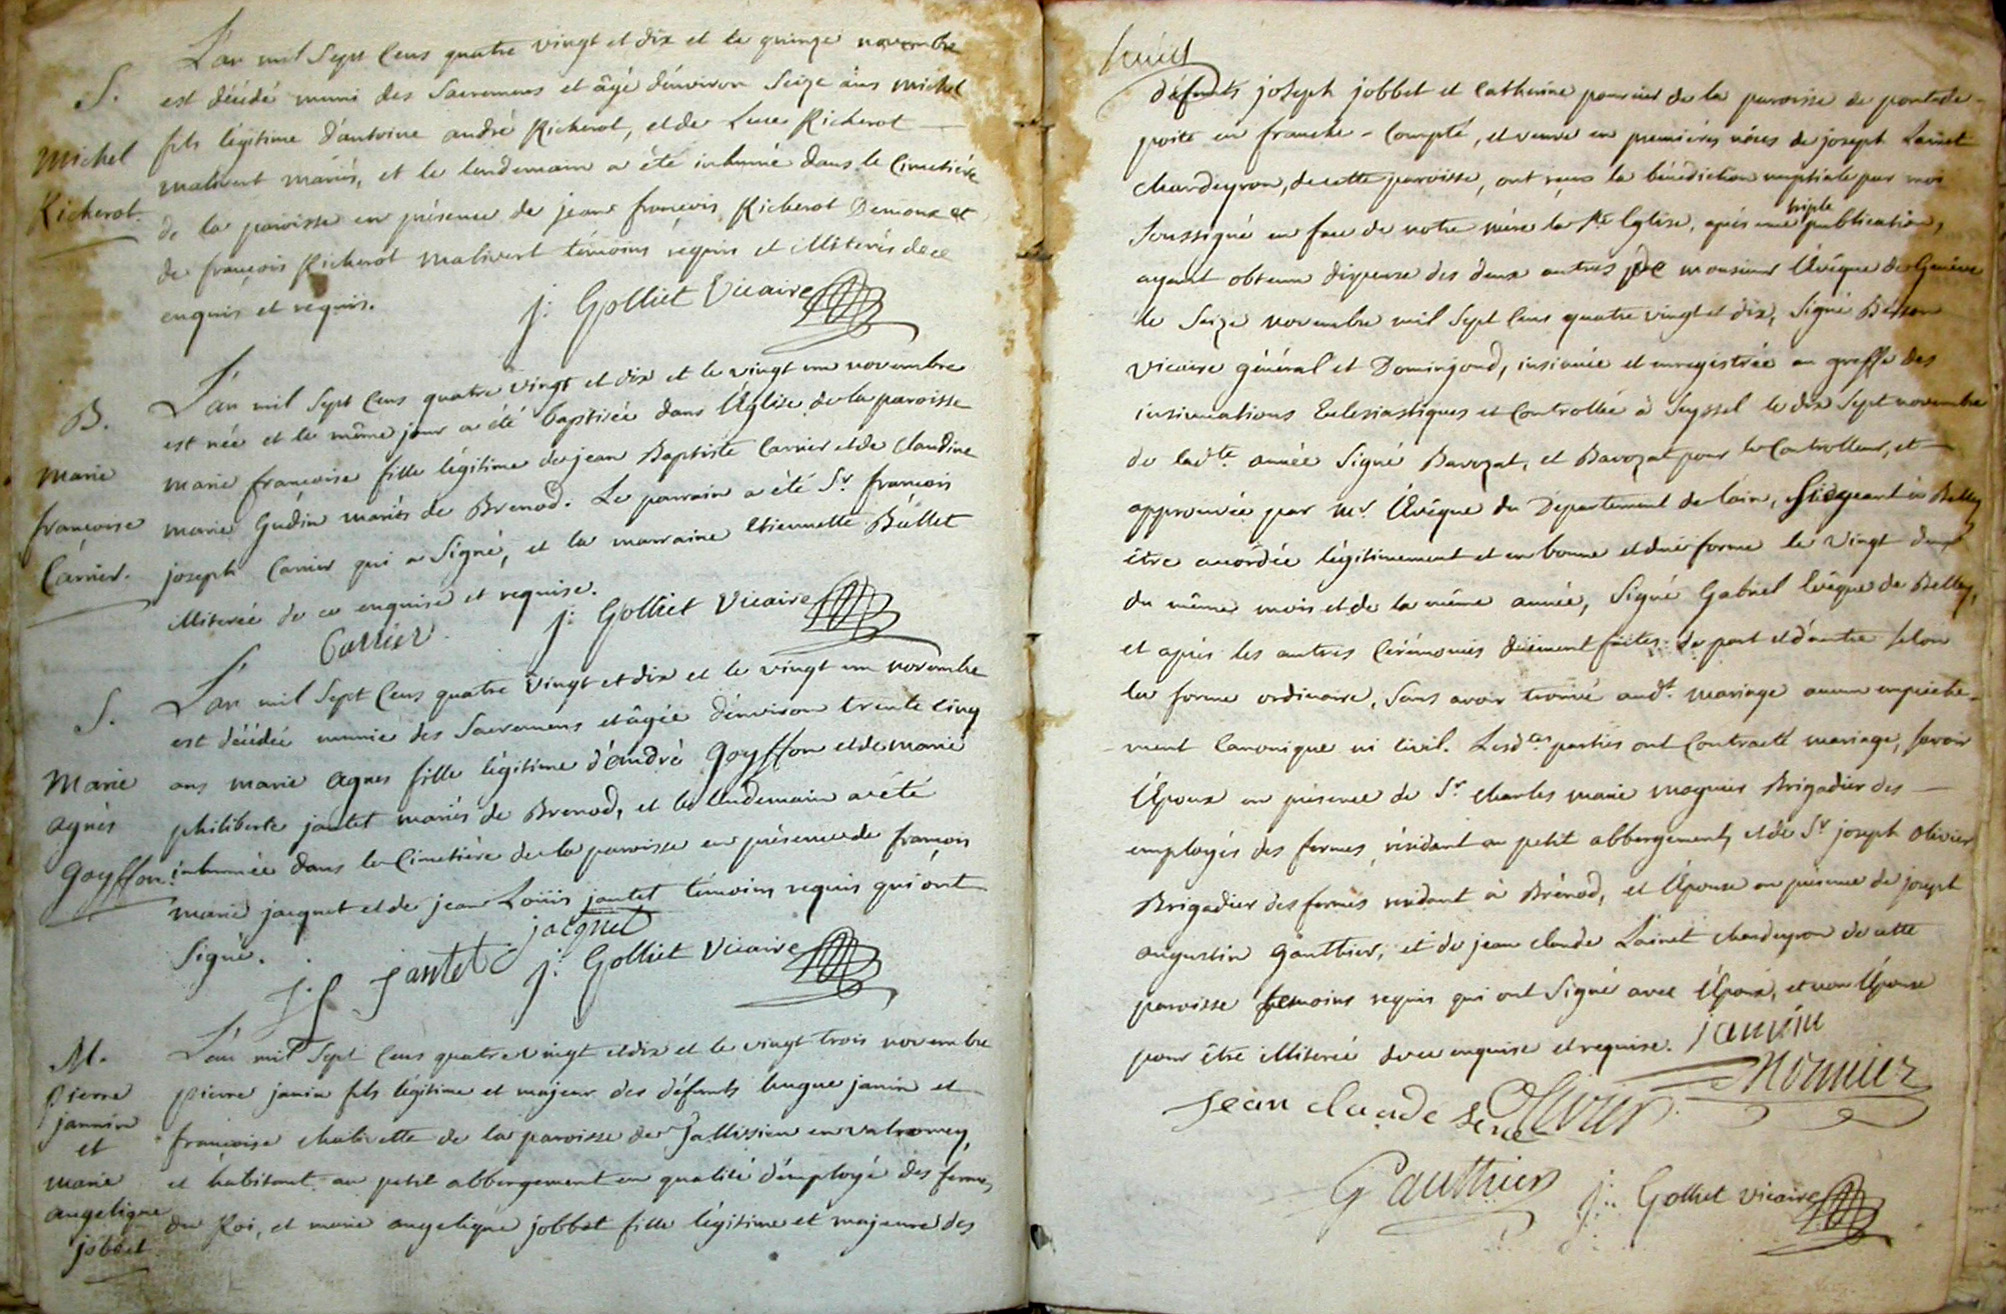 L'an mil Sept Cens quatre vingt et dix et le quinze novembre
S. est décédé muni des Sacremens et âgé d'environ Seize ans michel
Michel fils légitime d'antoine andré Richerot, et de Luce Richerot
malivert mariés, et le lendemain a été inhumé dans le Cimetière
Richerot. de la paroisse en présence de jean françois Richerot Demoux et
de françois Richerot malivert témoins requis et illiterés de ce
enquis et requis.
j: Golliet Vicaire
L'an mil Sept Cens quatre vingt et dix et le vingt un novembre
B. est née et le même jour a été baptisée dans l'Église de la paroisse
marie marie françoise fille légitime de jean Baptiste Carrier et de Claudine
françoise marie Gudin mariés de Brenod. Le parrain a été Sr. françois
Carrier. joseph Carrier qui a Signé, et la marraine Etiennette Ballet
illiterée de ce enquise et requise.
Carrier j: Golliet Vicaire
L'an mil Sept Cens quatre vingt et dix et le vingt un novembre
S. est décédée munie des Sacremens et âgée d'environ trente cinq
Marie ans marie agnes fille légitime d'andré Goyffon et de marie
agnès philiberte jantet mariés de Brenod, et le lendemain a été
Goyffon. inhumée dans le Cimetière de la paroisse en présence de françois
marie jacquet et de jean Loüis jantet témoins requis qui ont
Signé. jacquet
jantet j: Golliet Vicaire
M. L'an mil Sept Cens quatre vingt et dix et le vingt trois novembre
Pierre pierre janin fils légitime et majeur des défunts hugue janin et
jannin
et françoise de la paroisse de en valromey,
marie et habitant au petit abbergement en qualité d'employé des fermes
angelique du Roi, et marie angelique jobbet fille légitime et majeure des
jobbet
défunts joseph jobbet et Catherine de la paroisse de
en franche-Compté, et veuve en premières nôces de joseph Lainet
chardeyron, de cette paroisse, ont reçu la bénédiction nuptiale par moi
Soussigné en face de notre mère la Ste Église, après une triple publication,
ayant obtenu dispense des deux autres de monsieur l'Évêque de Genève
le Seize novembre mil Sept Cens quatre vingt et dix, Signé
vicaire général et Dominjond, insinuée et enregistrée au greffe des
insinuations Eclesiastiques et Controllée à Seyssel le dix Sept novembre
de ladte. année Signé Bavozat, et Bavozat pour le Controlleur, et
approuvée par mr. l'Évêque du Département de l'ain, Siégeant à Belley
être accordée légitimement et en bonne et due forme le vingt deux
du même mois et de la même année, Signé Gabriel Évêque de Belley,
et après les autres Cérémonies düement faites de part et d'autre Selon
la forme ordinaire, Sans avoir trouvé audt. mariage aucun empêche-
ment Canonique ni civil. Lesdtes parties ont Contracté mariage, Savoir
l'Époux en présence de Sr. charles marie Brigadier des
employés des fermes, résidant au petit abbergement, et de Sr. joseph olivier
Brigadier des fermes résidant à Brénod, et l'Épouse en présence de joseph
augustin Gauthier, et de jean claude Lainet chardeyron de cette
paroisse témoins requis qui ont Signé avec l'Époux, et non l'Épouse
pour être illiterée de ce enquise et requise. janin
jean claude lené Olivier
Gauthier j: Golliet Vicaire